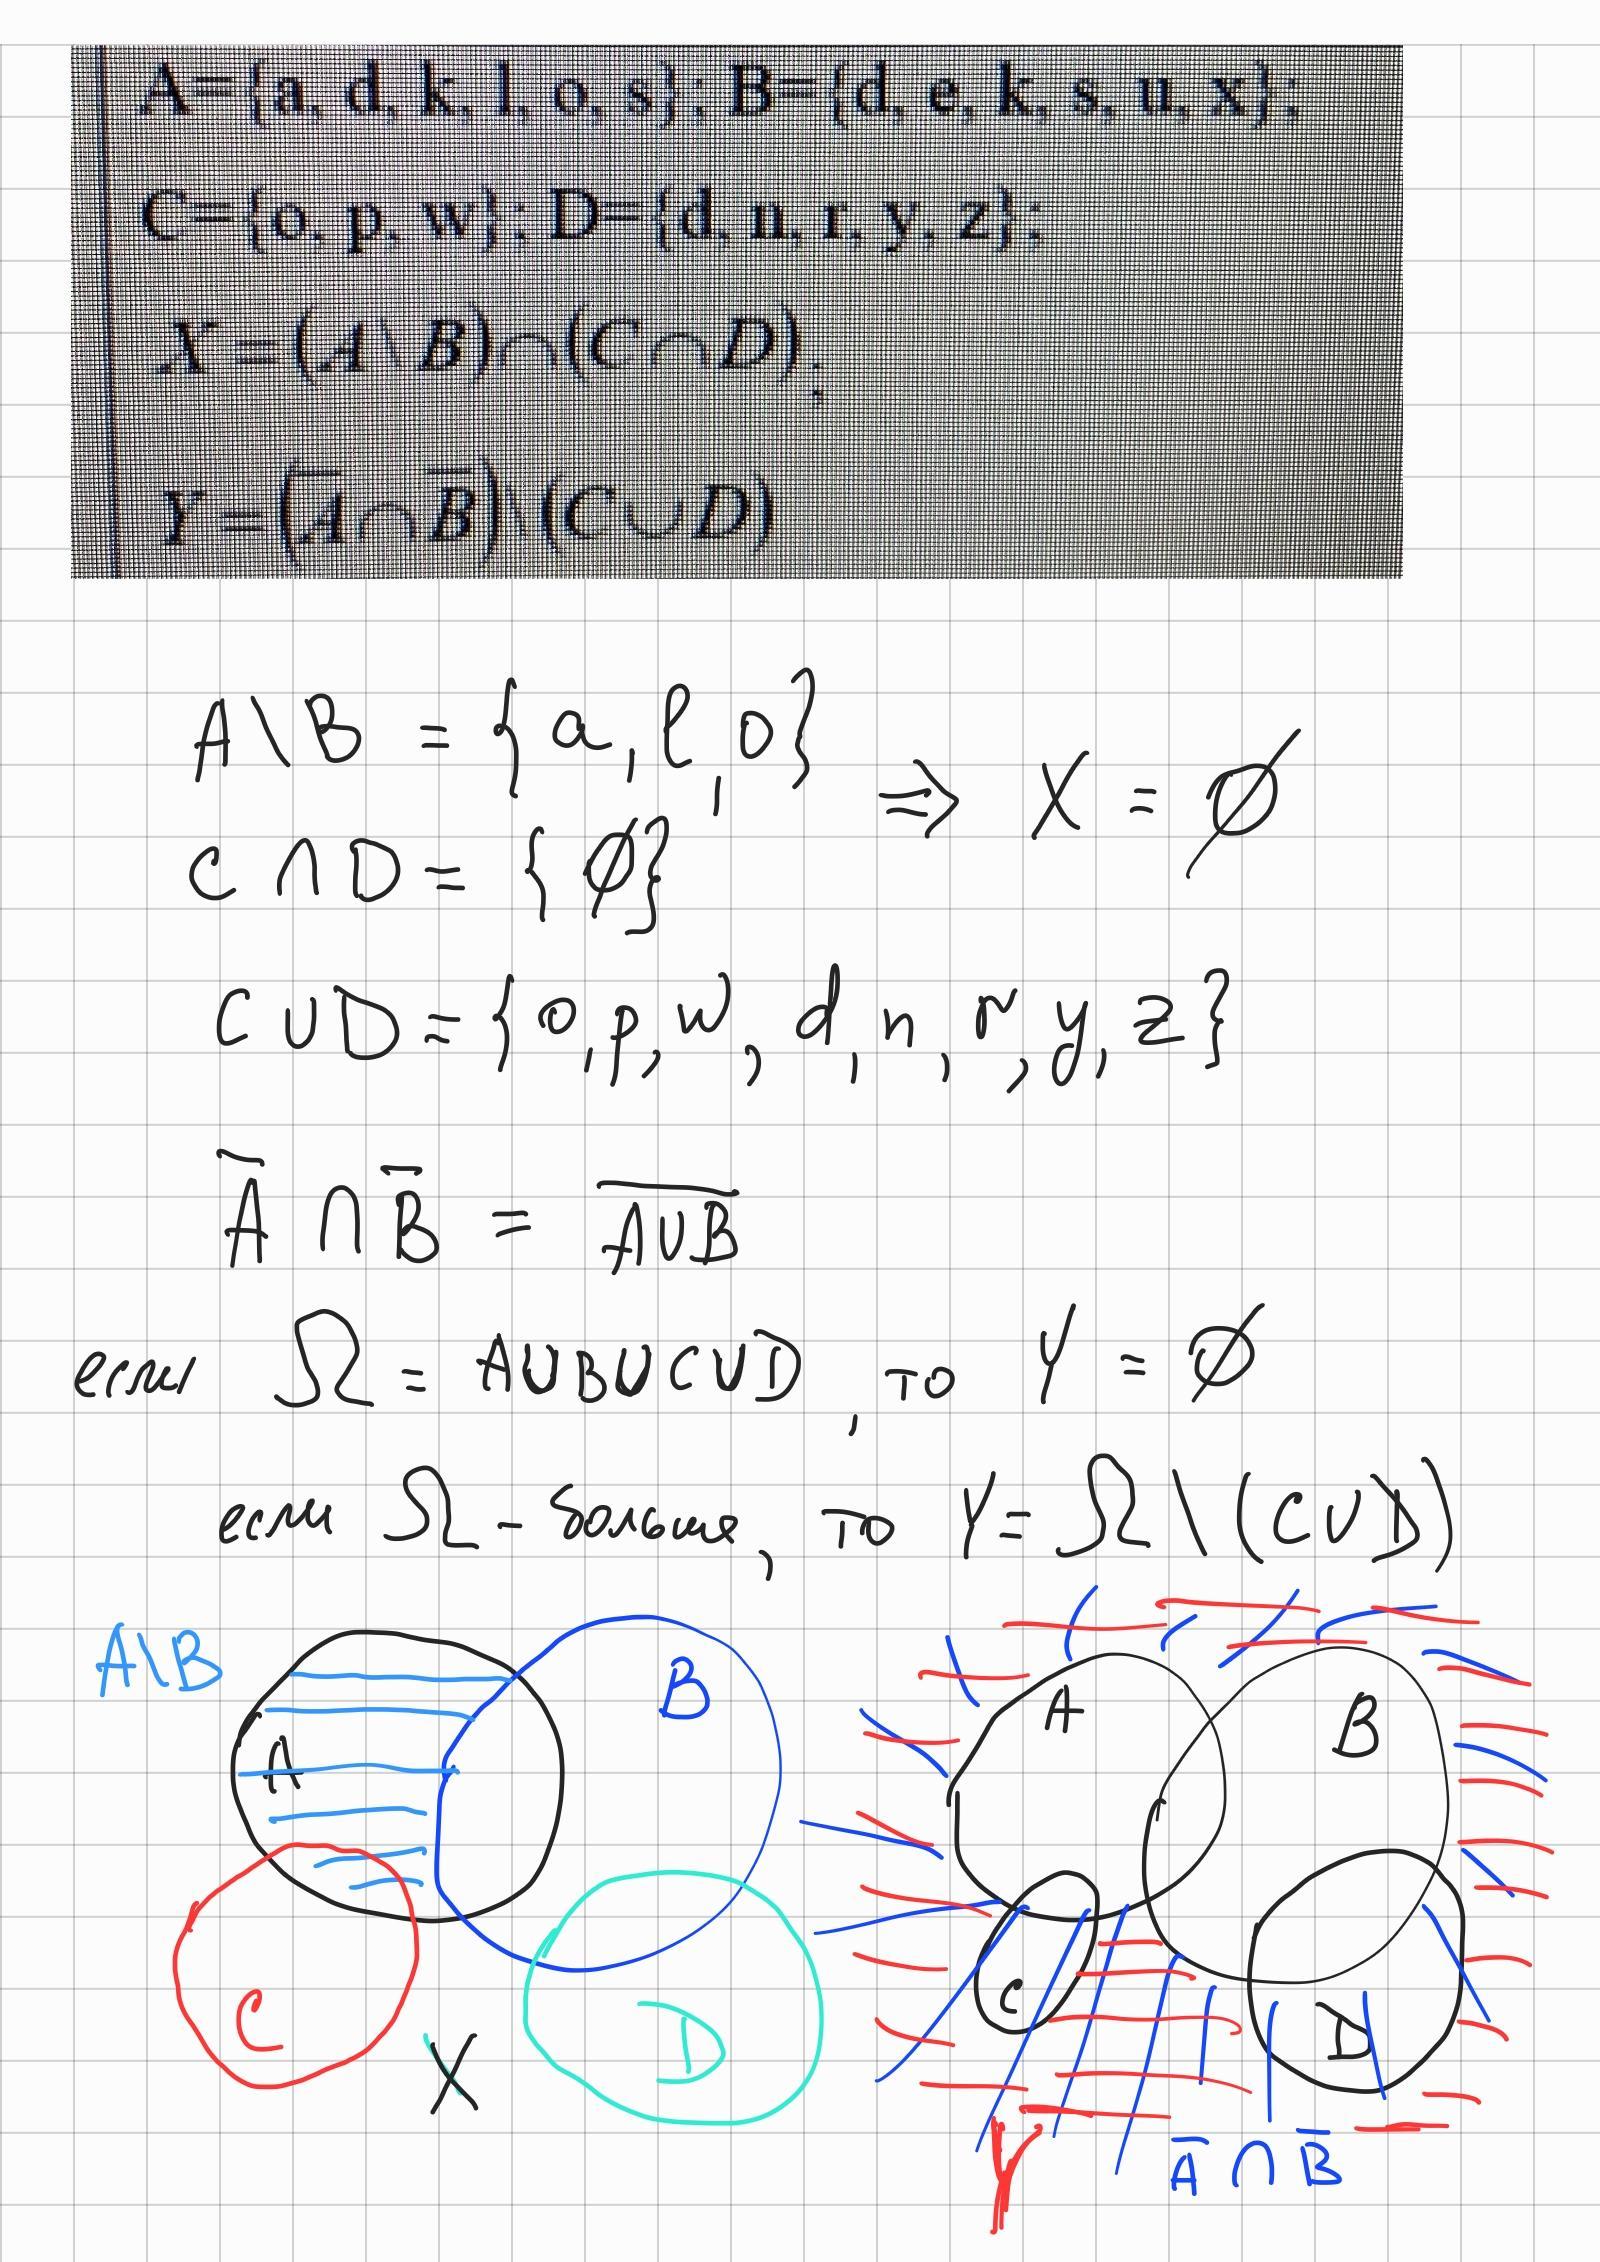 A={a, d, k, l, o, s}; B={d, e, k, s, u, x};
C={o, p, w}; D={d, n, r, y, z};
X = (A \ B) ∩ (C ∩ D);
Y = (A̅ ∩ B̅) \ (C ∪ D)
A\B = {a, l, o} ⇒ X = ∅
C ∩ D = {∅}
C ∪ D = {o, p, w, d, n, r, y, z}
A̅ ∩ B̅ = A̅∪̅B̅
если Ω = A∪B∪C∪D, то Y = ∅
если Ω - больше, то Y = Ω \ (C ∪ D)
A\B
A
B
C
D
X
A
B
C
D
Y
A̅ ∩ B̅